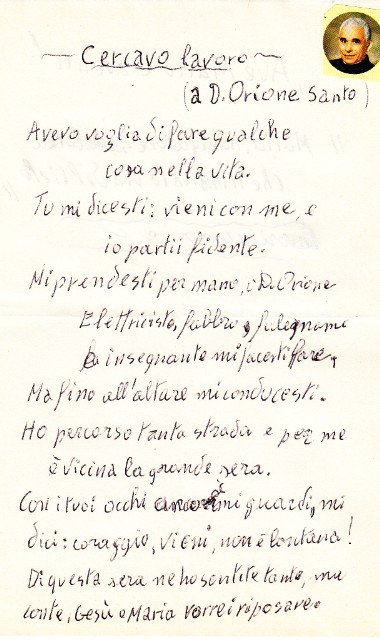 ~ Cercavo lavoro ~
(a D. Orione Santo)
Avevo voglia di fare qualche
cosa nella vita.
Tu mi dicesti: vieni con me, e
io partii fidente.
Mi prendesti per mano, o D. Orione
Elettricista, fabbro, falegname
insegnante mi facesti fare,
Ma fino all'altare mi conducesti.
Ho percorso tanta strada e per me
è vicina la grande sera.
Con i tuoi occhi ancora mi guardi, mi
dici: coraggio, vieni, non è lontana!
Di questa sera ne ho sentite tante, ma
conte, Gesù e Maria vorrei riposare.